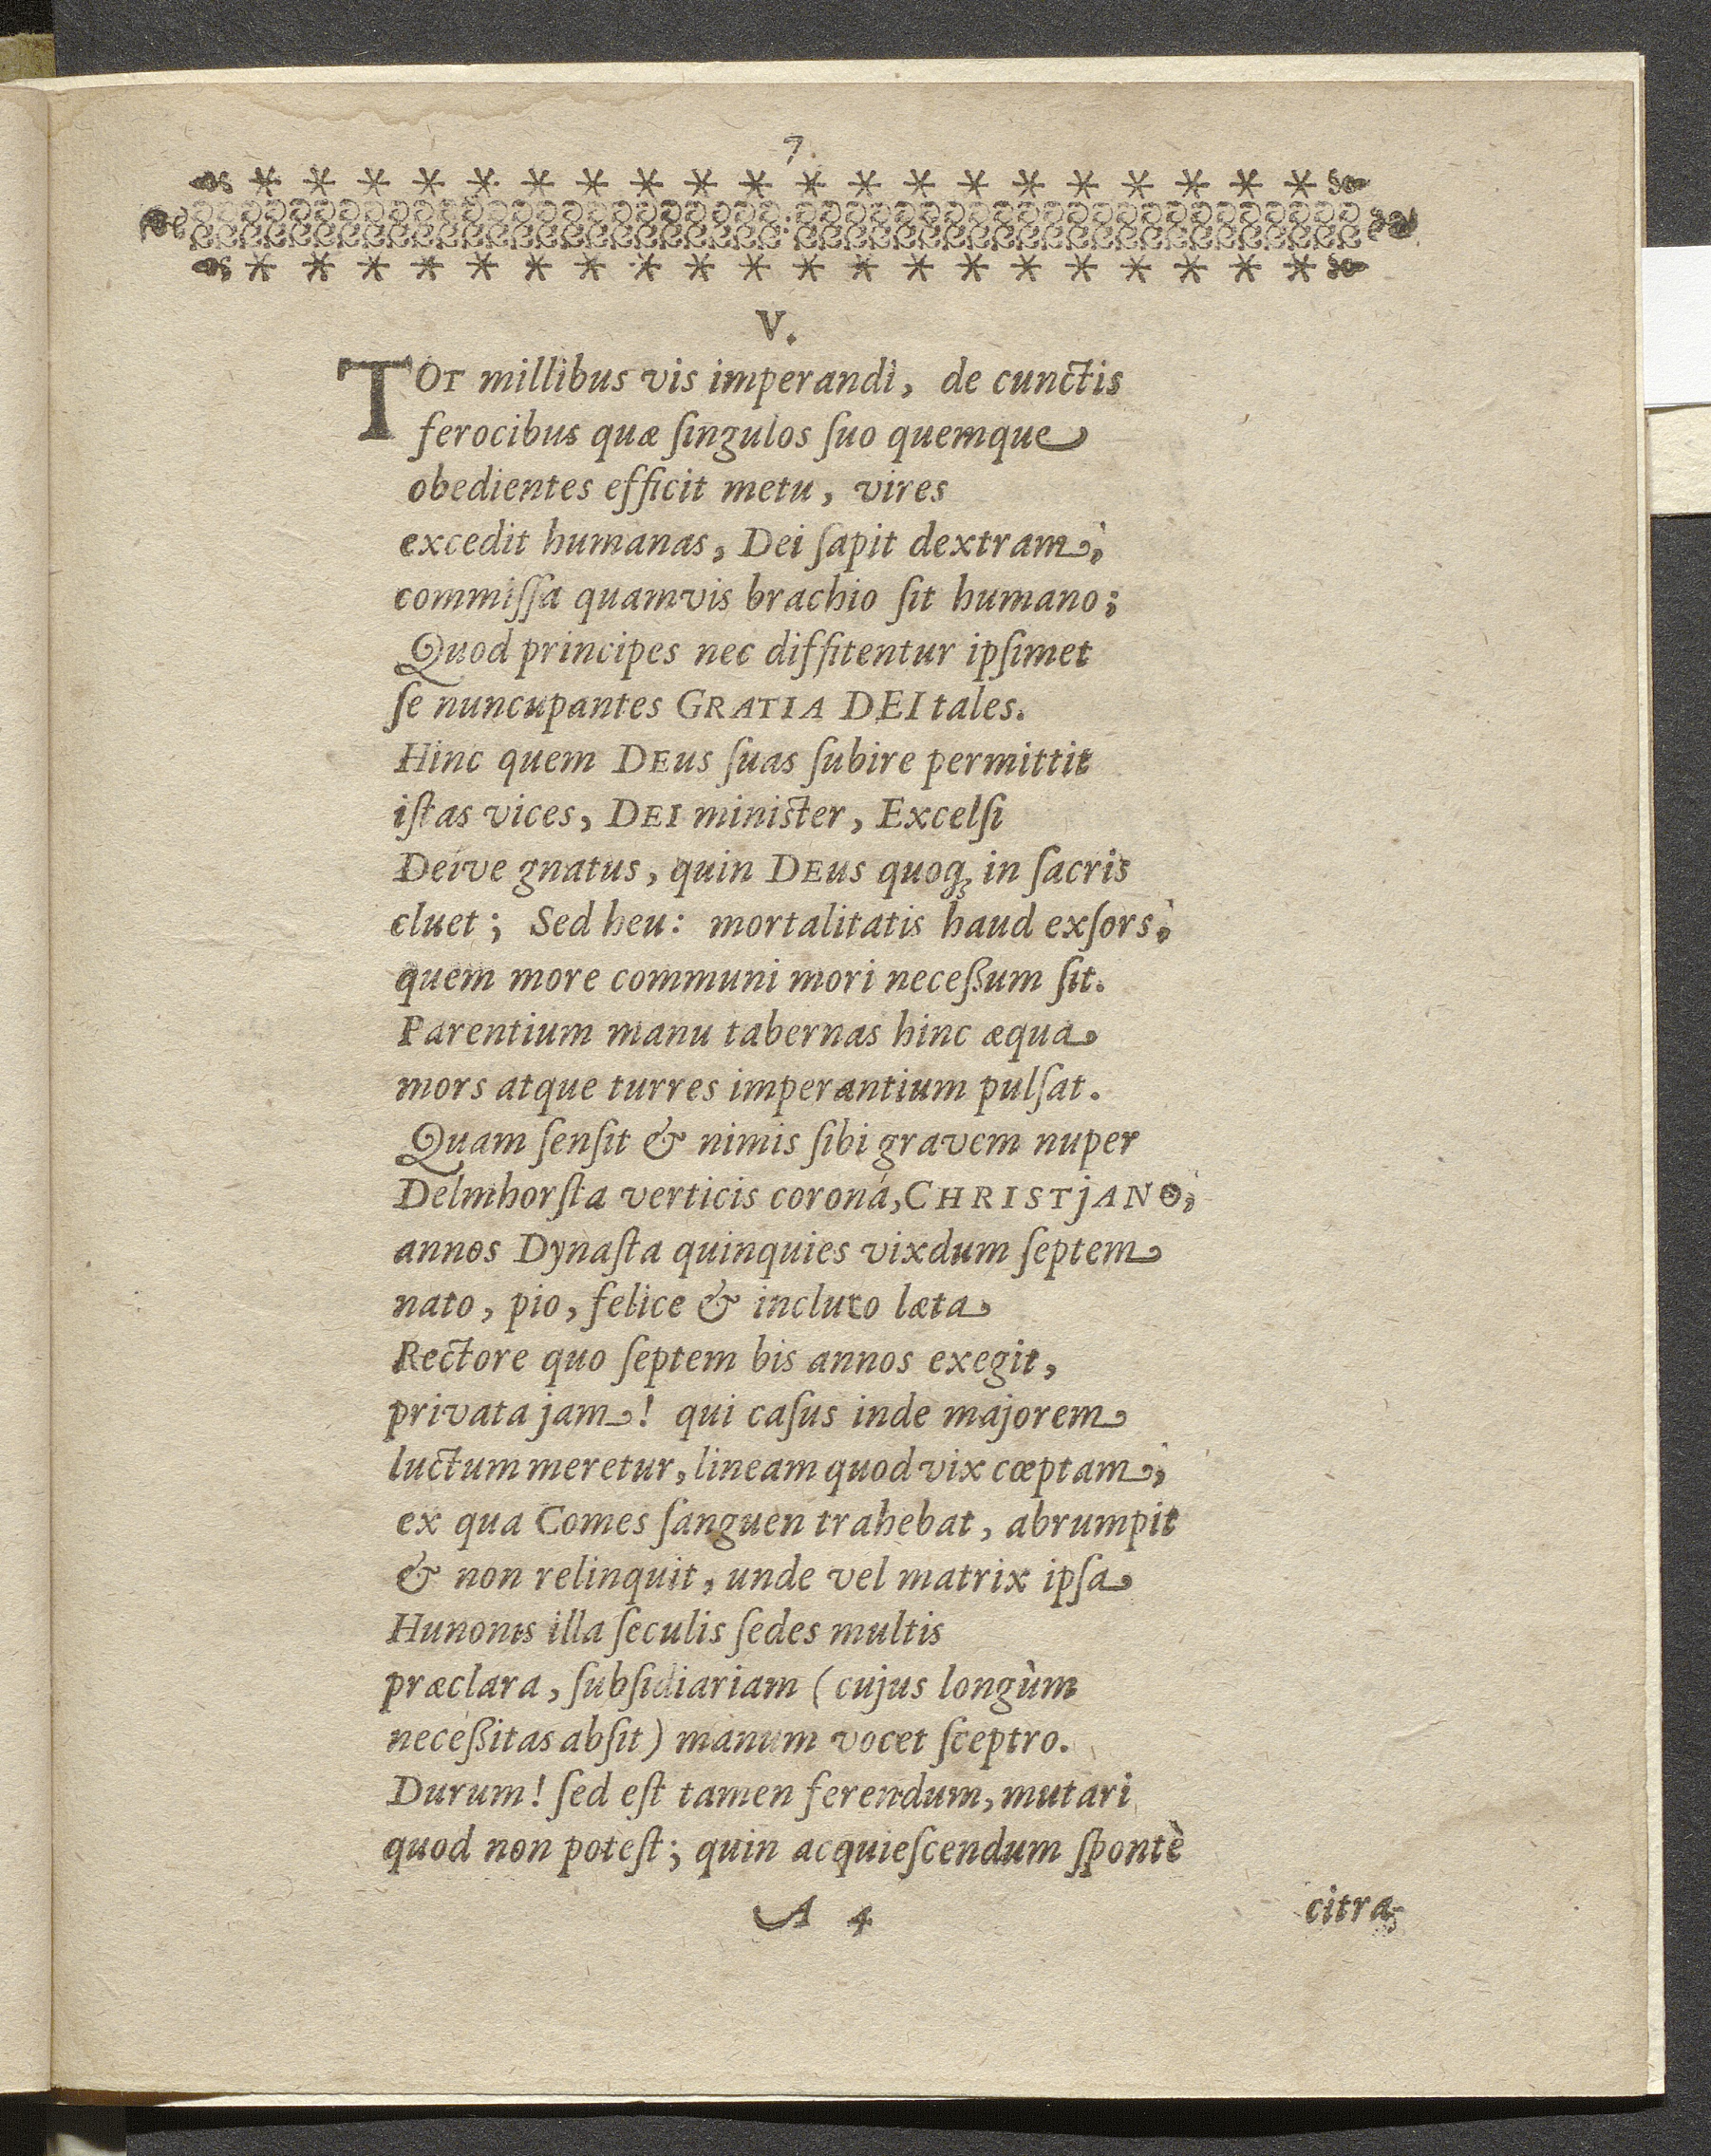 7.
V.
TOT millibus vis imperandi, de cunctis
ferocibus quæ ſingulos ſuo quemque
obedientes efficit metu, vires
excedit humanas, Dei ſapit dextram,
commiſſa quamvis brachio ſit humano;
Quod principes nec diffitentur ipſimet
ſe nuncupantes GRATIA DEI tales.
Hinc quem DEus ſuas ſubire permittit
iſtas vices, DEI miniſter, Excelſi
Deíve gnatus, quin DEus quoq; in ſacris
cluet; Sed heu: mortalitatis haud exſors,
quem more communi mori neceßum ſit.
Parentium manu tabernas hinc æqua
mors atque turres imperantium pulſat.
Quam ſenſit & nimis ſibi gravem nuper
Delmhorſta verticis coroná, CHRISTjANO,
annos Dynaſta quinquies vixdum ſeptem
nato, pio, felice & incluto læta
Rectore quo ſeptem bis annos exegit,
privata jam! qui caſus inde majorem
luctum meretur, lineam quod vix cœptam,
ex qua Comes ſanguen trahebat, abrumpit
& non relinquit, unde vel matrix ipſa
Hunonis illa ſeculis ſedes multis
præclara, ſubſidiariam (cujus longùm
neceßitas abſit) manum vocet ſceptro.
Durum! ſed eſt tamen ferendum, mutari
quod non poteſt; quin acquieſcendum ſpontè
A 4
citra